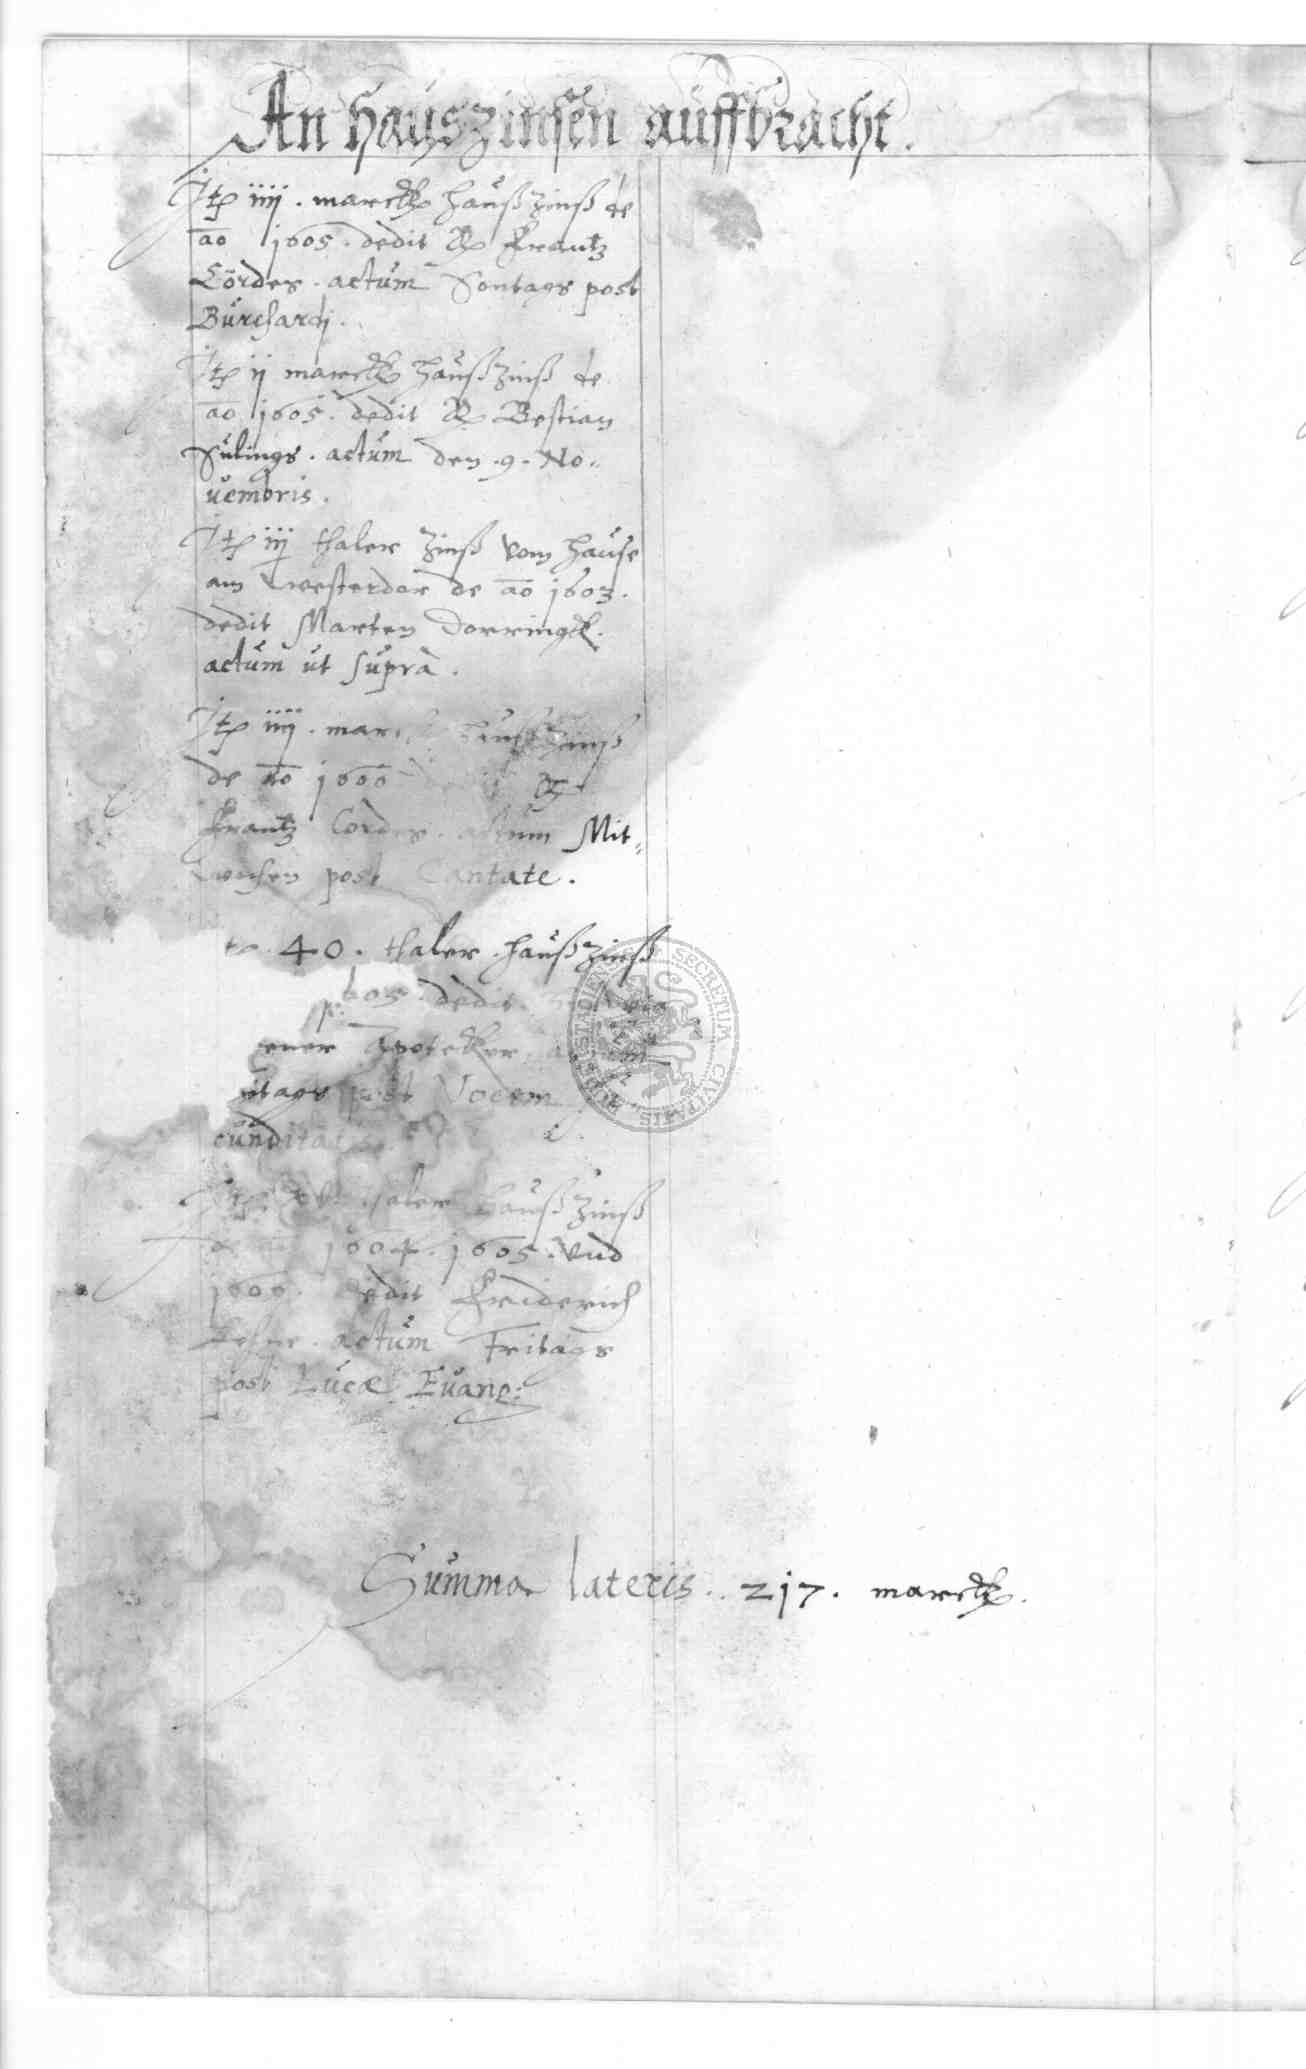 An hauszinsen auffbracht.
Itp iiij . marck haußzinß de
ao 1605 . dedit H Frantz
Cördes . actum Sontags post
Burchardj .
Itp ij marck haußzinß de
ao 1605 . dedit H Bestian
Sulings . actum den .9. No=
uembris .
Itp iij thaler zinß vom hause
am westerdor de ao 1603 .
dedit Marten Dorringk .
actum ut supra .
Itp iiij . haußzinß
de ao 1606 H
Frantz Cordes . actum Mit=
wochen post Cantate .
40 . thaler . haußzinß
605 . dedit
Apoteker
post Vocem
cundita
thaler haußzinß
1604 . 1605 . vnd
1606 . dedit Friderich
actum Fritags
post Lucæ Euang:
Summa lateris . 217 . marck .
SECRETUM CIVITATIS